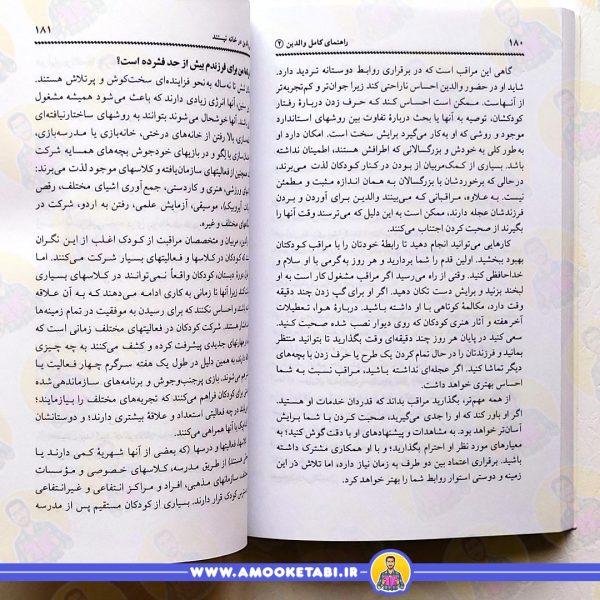 ۱۸۰ راهنمای کامل والدین (۲)
گاهی این مراقب است که در برقراری روابط دوستانه تردید دارد.
شاید او در حضور والدین احساس ناراحتی کند زیرا جوان‌تر و کم‌تجربه‌تر
از آنهاست. ممکن است احساس کند که حرف زدن دربارهٔ رفتار
کودکشان، توصیه به آنها یا بحث دربارهٔ تفاوت بین روشهای استاندارد
موجود و روشی که او به کار می‌گیرد برایش سخت است. امکان دارد او
به طور کلی به خودش و بزرگسالانی که اطرافش هستند، اطمینان نداشته
باشد. بسیاری از کمک‌مربیان از بودن در کنار کودکان لذت می‌برند،
در حالی که برخوردشان با بزرگسالان به همان اندازه مثبت و مطمئن
نیست. به علاوه، مراقبانی که می‌بینند والدین برای آوردن و بردن
فرزندشان عجله دارند، ممکن است به این دلیل که می‌ترسند وقت آنها را
بگیرند از صحبت کردن اجتناب می‌کنند.
کارهایی می‌توانید انجام دهید تا رابطهٔ خودتان را با مراقب کودکتان
بهبود ببخشید. اولین قدم را شما بردارید و هر روز به گرمی با او سلام و
خداحافظی کنید. وقتی از راه می‌رسید اگر مراقب مشغول کار است به او
لبخند بزنید و برایش دست تکان دهید. اگر او برای گپ زدن چند دقیقه
وقت دارد، مکالمهٔ کوتاهی با او داشته باشید. دربارهٔ هوا، تعطیلات
آخر هفته و آثار هنری کودکان که روی دیوار نصب شده صحبت کنید.
سعی کنید در پایان هر روز چند دقیقه‌ای وقت بگذارید تا بتوانید منتظر
بمانید و فرزندتان را در حال تمام کردن یک طرح یا حرف زدن با بچه‌های
دیگر تماشا کنید. اگر عجله‌ای نداشته باشید، مراقب نسبت به شما
احساس بهتری خواهد داشت.
از همه مهم‌تر، بگذارید مراقب بداند که قدردان خدمات او هستید.
اگر او باور کند که او را جدی می‌گیرید، صحبت کردن با شما برایش
آسان‌تر خواهد بود. به مشاهدات و پیشنهادهای او با دقت گوش کنید؛ به
معیارهای مورد نظر او احترام بگذارید؛ و با او همکاری مشترک داشته
باشید. برقراری اعتماد بین دو طرف به زمان نیاز دارد، اما تلاش در این
زمینه و دوستی استوار روابط شما را بهتر خواهد کرد.
در خانه نیستند ۱۸۱
برای فرزندم بیش از حد فشرده است؟
تا نه‌ساله به‌نحو فزاینده‌ای سخت‌کوش و پرتلاش هستند.
آنها انرژی زیادی دارند که باعث می‌شود همیشه مشغول
آنها خوشحال می‌شوند بتوانند به روشهای ساختارنیافته‌ای
بالا رفتن از خانه‌های درختی، خانه‌بازی یا مدرسه‌بازی،
با لگو و در بازیهای خودجوش بچه‌های همسایه شرکت
از فعالیتهای سازمان‌یافته و کلاسهای موجود لذت می‌برند:
ورزشی، هنری و کاردستی، جمع‌آوری اشیای مختلف، رقص
موسیقی، آزمایش علمی، رفتن به اردو، شرکت در
مختلف و غیره.
مربیان و متخصصان مراقبت از کودک اغلب از این نگران
کودکان در کلاسها و فعالیتهای بسیار شرکت می‌کنند. اما
دورهٔ دبستان، کودکان واقعاً نمی‌توانند در کلاسهای بسیاری
زیرا آنها تا زمانی به کاری ادامه می‌دهند که به آن علاقه
و احساس نکنند که برای رسیدن به موفقیت در تمام زمینه‌ها
شرکت کودکان در فعالیتهای مختلف زمانی است که در
مهارتهای جدیدی پیشرفت کرده و کشف می‌کنند به چه چیزی
به همین دلیل در طول یک هفته سرگرم چهار فعالیت یا
می‌شوند. بازی پرجنب‌وجوش و برنامه‌های سازماندهی شده
برای کودکان فراهم می‌کنند که تجربه‌های مختلف را بیازمایند؛
در چه فعالیتی استعداد و علاقهٔ بیشتری دارند؛ و دوستانشان
با آنها همراهی می‌کنند.
فعالیتها و درسها (که بعضی از آنها شهریهٔ کمی دارند یا
هستند) از طریق مدرسه، کلاسهای خصوصی و مؤسسات
سازمانهای مذهبی، افراد و مراکز انتفاعی و غیرانتفاعی
کودک قرار دارند. بسیاری از کودکان مستقیم پس از مدرسه
WWW.AMOOKETABI.IR